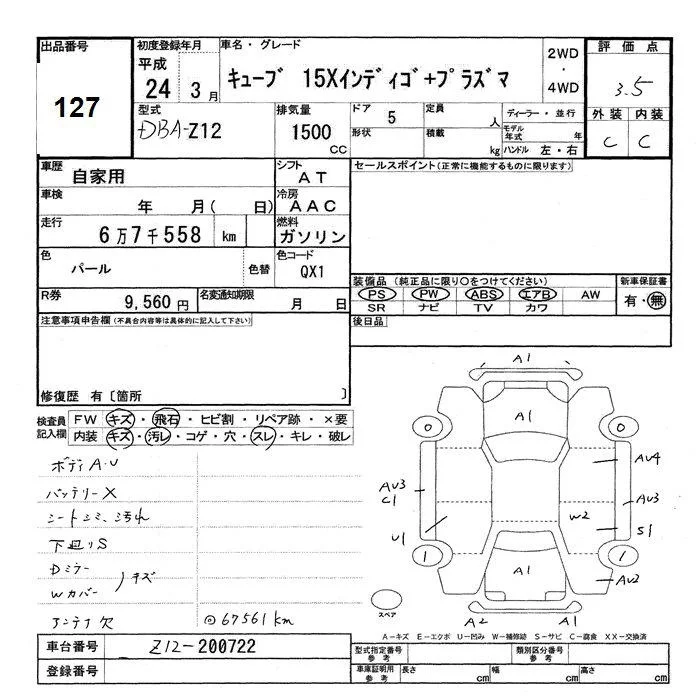 出品番号
127
初度登録年月
平成
24 3月
車名・グレード
キューブ 15Xインディゴ+プラズマ
2WD
・
4WD
評価点
3.5
外装 内装
C C
型式
DBA-Z12
排気量
1500
CC
ドア 5
形状
定員 人
積載 kg
ディーラー・並行
モデル年式 年
ハンドル 左・右
車歴
自家用
シフト
AT
車検
年 月( 日)
冷房
AAC
走行
6万7千558 km
燃料
ガソリン
色
パール
色替
色コード
QX1
R券
9,560円
名変通知期限
月 日
セールスポイント(正常に機能するものに限ります)
装備品(純正品に限り○をつけてください)
PS PW ABS エアB AW
SR ナビ TV カワ
新車保証書
有・無
後日品
注意事項申告欄(不具合内容等は具体的に記入して下さい)
修復歴 有〔箇所 〕
検査員
記入欄
FW キズ・飛石・ヒビ割・リペア跡・×要
内装 キズ・汚レ・コゲ・穴・スレ・キレ・破レ
ボディA・U
バッテリーX
シートシミ、汚れ
下廻りS
Dミラー
Wカバー
キズ
アンテナ欠
◎67561km
A1
A1
AU4
AU3
C1
AU3
W2
U1
S1
A1
AU2
A2 A1
スペア
A-キズ E-エクボ U-凹み W-補修跡 S-サビ C-腐食 XX-交換済
車台番号
Z12-200722
登録番号
型式指定番号
参考
類別区分番号
参考
車庫証明用
参考
長さ cm
幅 cm
高さ cm